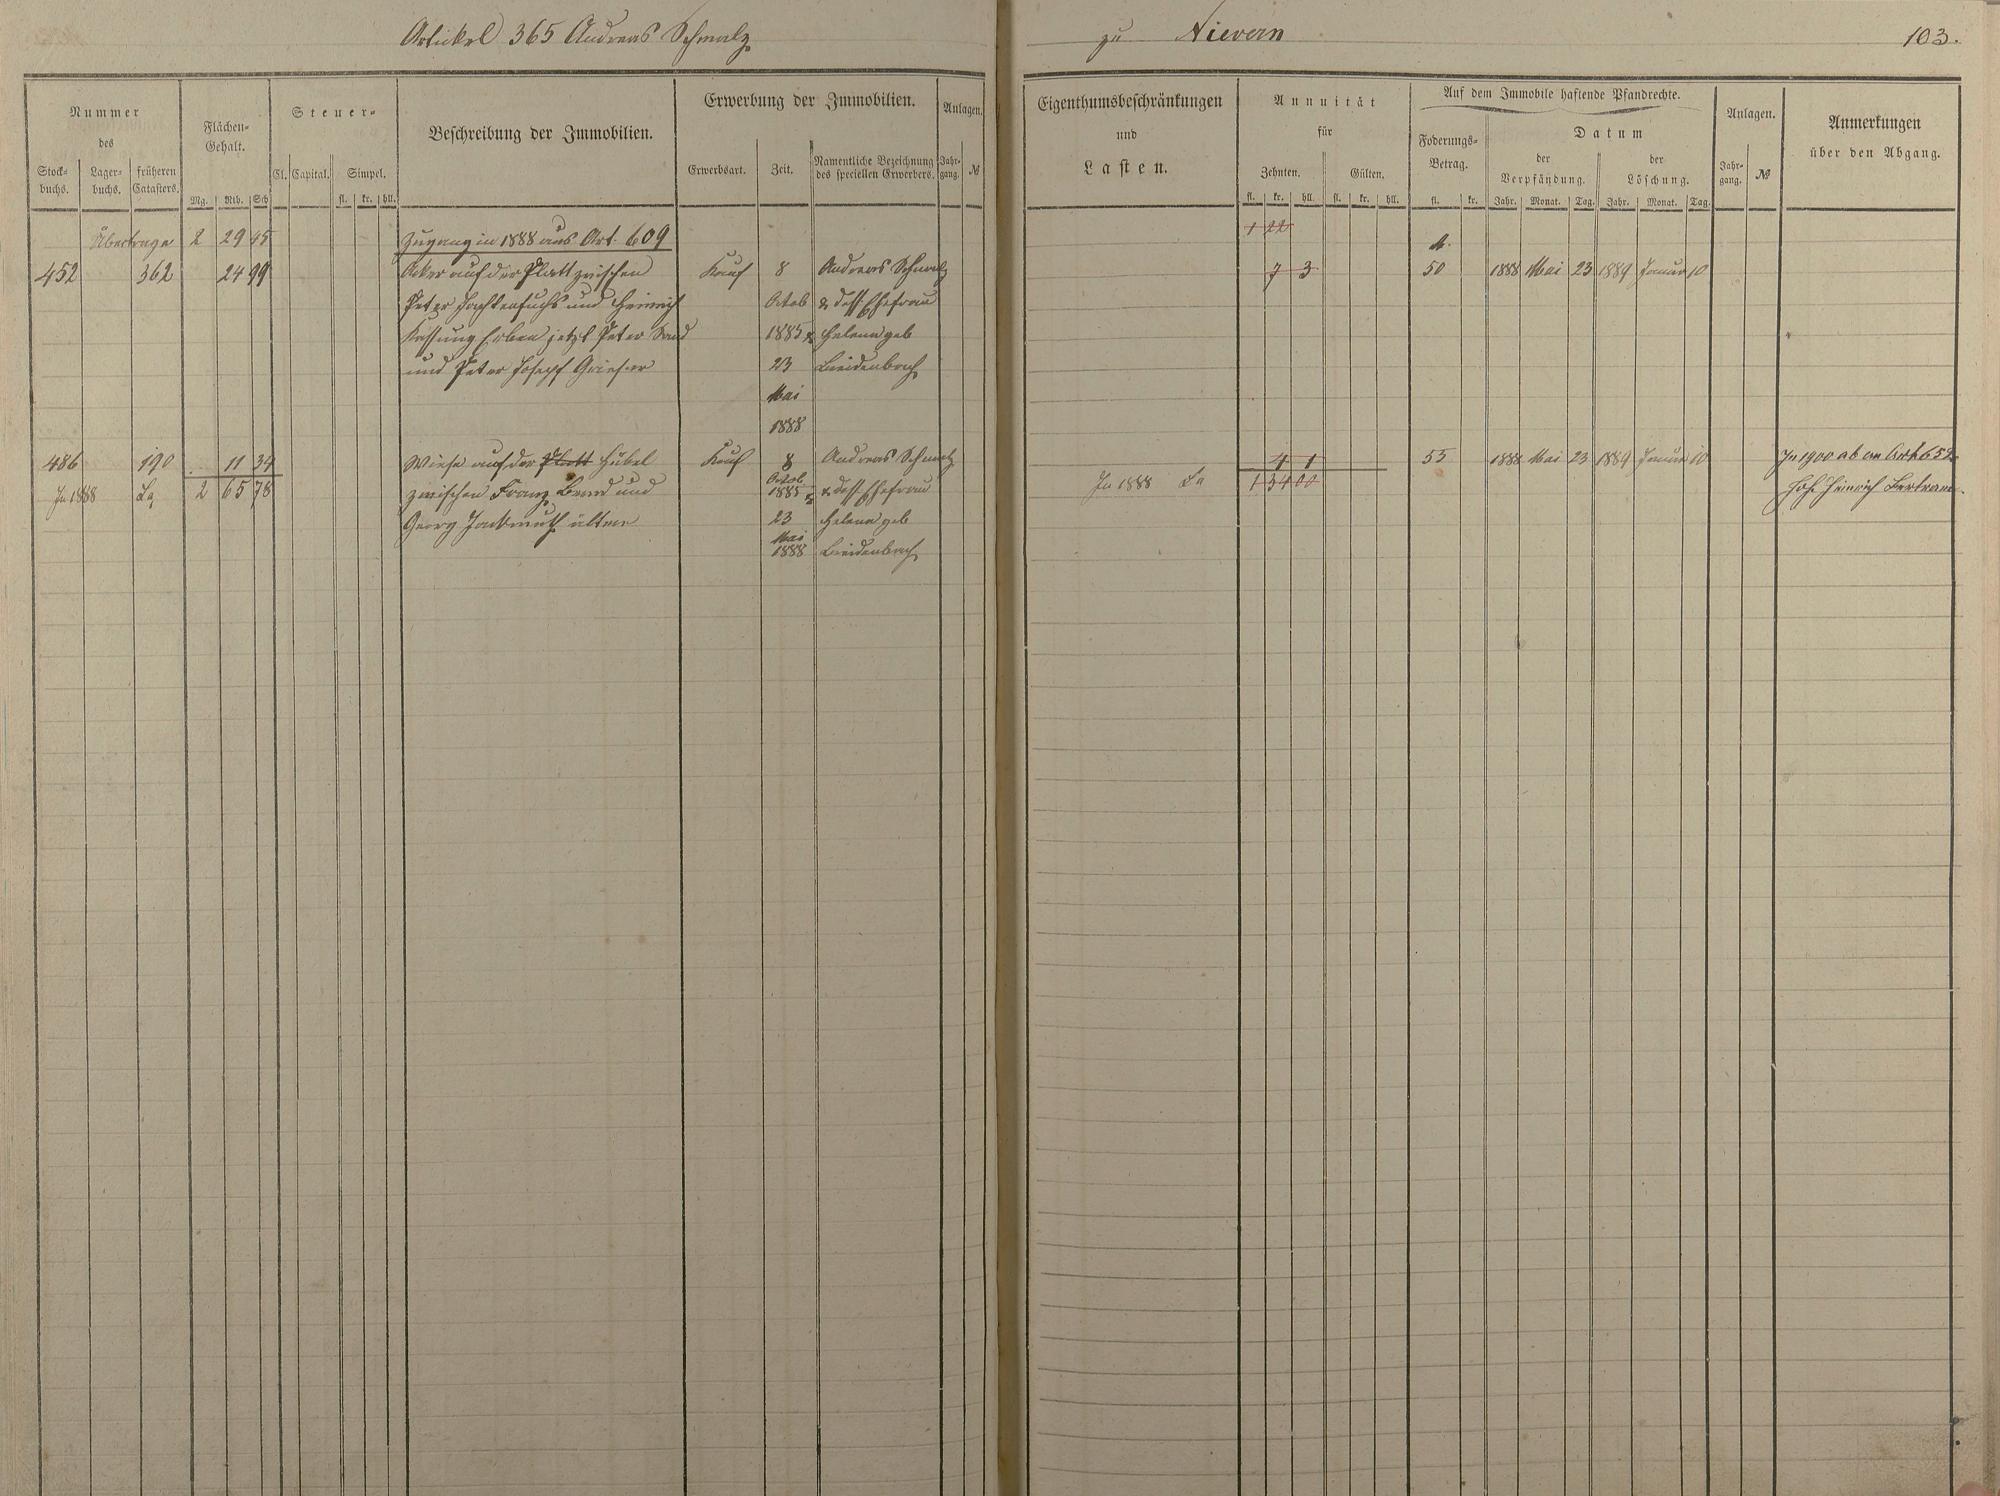 Artickel 365 Andreas Schmalz
zu Nievern
103.
Nummer
des
Stock-
buchs.
Lager-
buchs.
früheren
Catasters.
Flächen-
Gehalt.
Mg. Rth. Sch
Steuer-
Cl. Capital. Simpel.
fl. kr. hll.
Beschreibung der Immobilien.
Erwerbung der Immobilien.
Erwerbsart. Zeit.
Namentliche Bezeichnung
des speciellen Erwerbers.
Anlagen.
Jahr-
gang. №
Eigenthumsbeschränkungen
und
Lasten.
Annuität
für
Zehnten. Gülten.
fl. kr. hll. fl. kr. hll.
Auf dem Immobile haftende Pfandrechte.
Foderungs-
Betrag.
fl. kr.
Datum
der
Verpfändung.
der
Löschung.
Jahr. Monat. Tag. Jahr. Monat. Tag.
Anlagen.
Jahr-
gang. №
Anmerkungen
über den Abgang.
Übertrage 2 29 45 Zugang in 1888 aus Art. 609 1 22
452 362 24 99 Acker auf der Platt zwischen Kauf 8 Andreas Schmalz 7 3 50 1888 Mai 23 1889 Januar 10
Peter und Heinrich Octob & dess Ehefrau
Erben jetzt Peter 1885 & Helena geb
und Peter Joseph Grieser 23 Breidenbach
Mai
1888
486 190 11 34 Wiese auf der Platt Hübel Kauf 8 Andreas Schmalz 4 1 55 1888 Mai 23 1889 Januar 10 In 1900 ab an Art 652
In 1888 Sa 2 65 78 zwischen Franz Brand und Octob 1885 & & dess Ehefrau In 1888 Sa 1 34 00 Joh. Heinrich Bertram
Georg älter 23 Helena geb
Mai
1888 Breidenbach